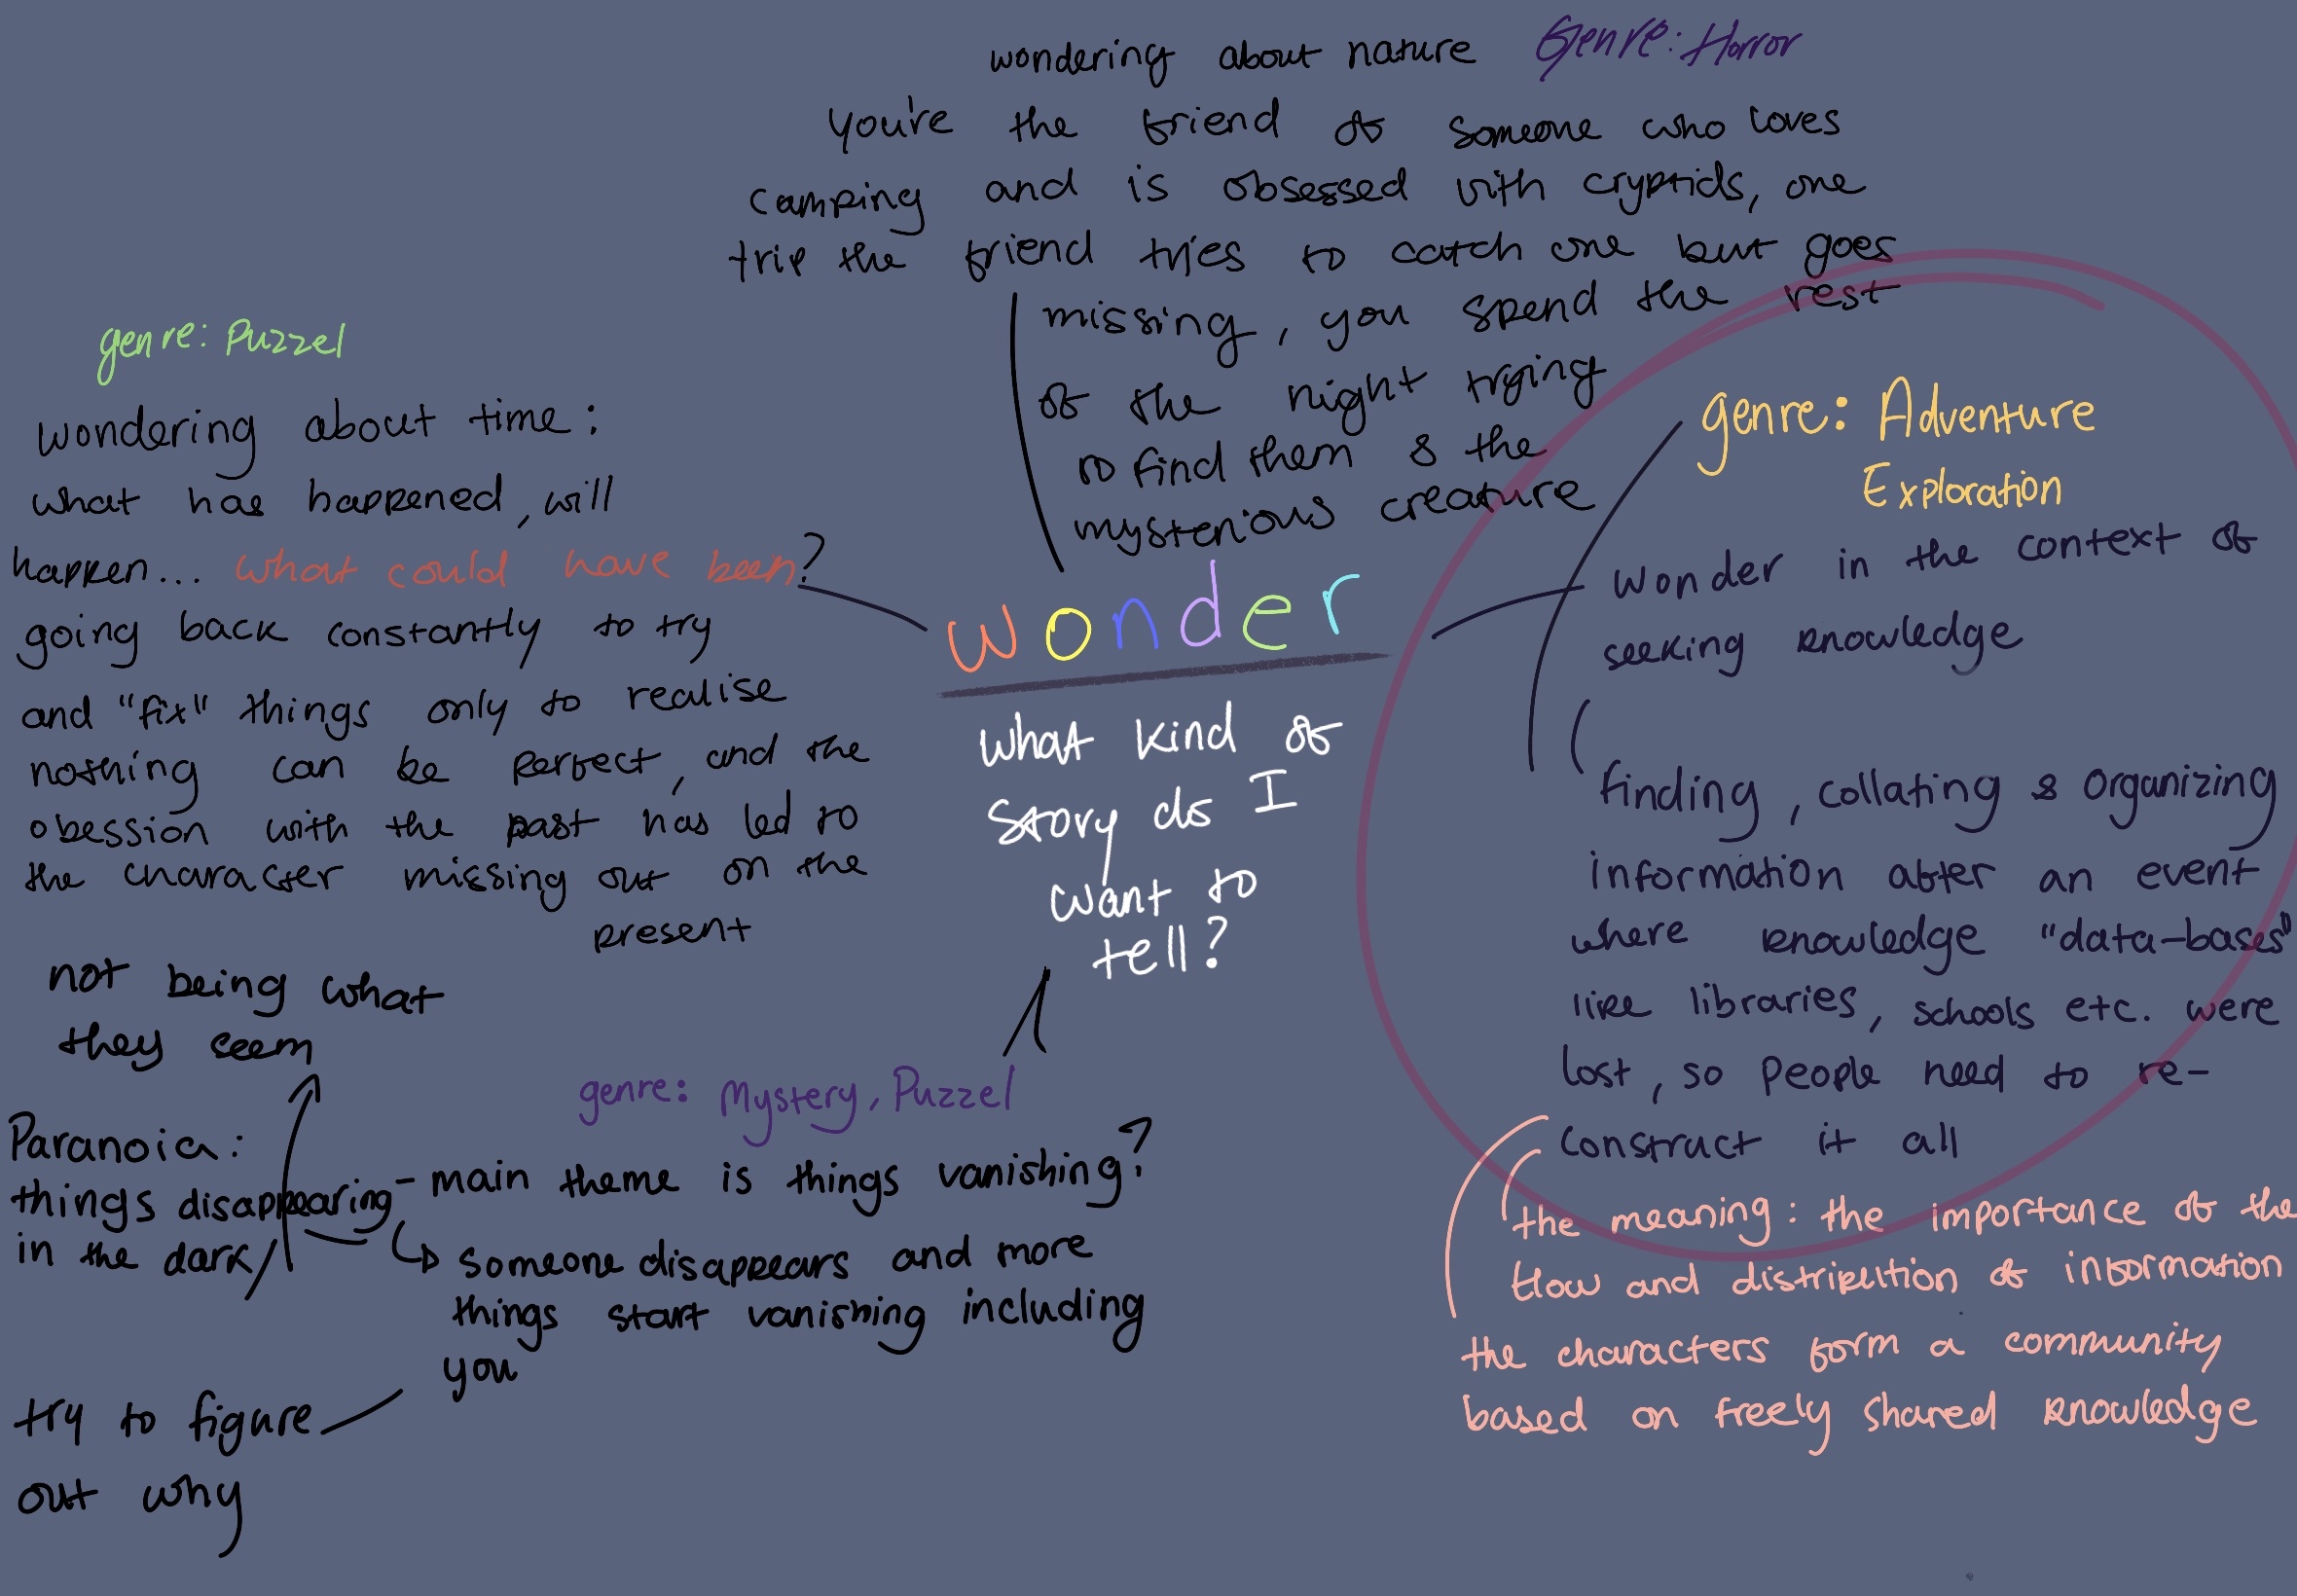 wondering about nature Genre: Horror
you're the friend of someone who loves
camping and is obsessed with cryptids, one
trip the friend tries to catch one but goes
missing, you spend the rest
of the night trying
to find them & the
mysterious creature
genre: Puzzel
wondering about time:
what has happened, will
happen... what could have been?
going back constantly to try
and "fix" things only to realise
nothing can be perfect, and the
obession with the past has led to
the character missing out on the
present
wonder
what kind of
story do I
want to
tell?
genre: Adventure
Exploration
wonder in the context of
seeking knowledge
finding, collating & organizing
information after an event
where knowledge "data-bases"
like libraries, schools etc. were
lost, so people need to re-
construct it all
the meaning: the importance of the
flow and distribution of information
the characters form a community
based on freely shared knowledge
genre: Mystery, Puzzel
main theme is things vanishing?
someone disappears and more
things start vanishing including
you
not being what
they seem
Paranoia:
things disappearing
in the dark,
try to figure
out why